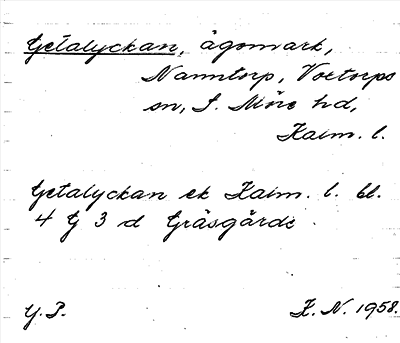 Getalyckan, ägomark,
Nanntorp, Voxtorps
sn, S. Möre hd,
Kalm. l.
Getalyckan ek Kalm. l. bl.
4 G 3 d Gräsgärde
G. P. K. N. 1958.